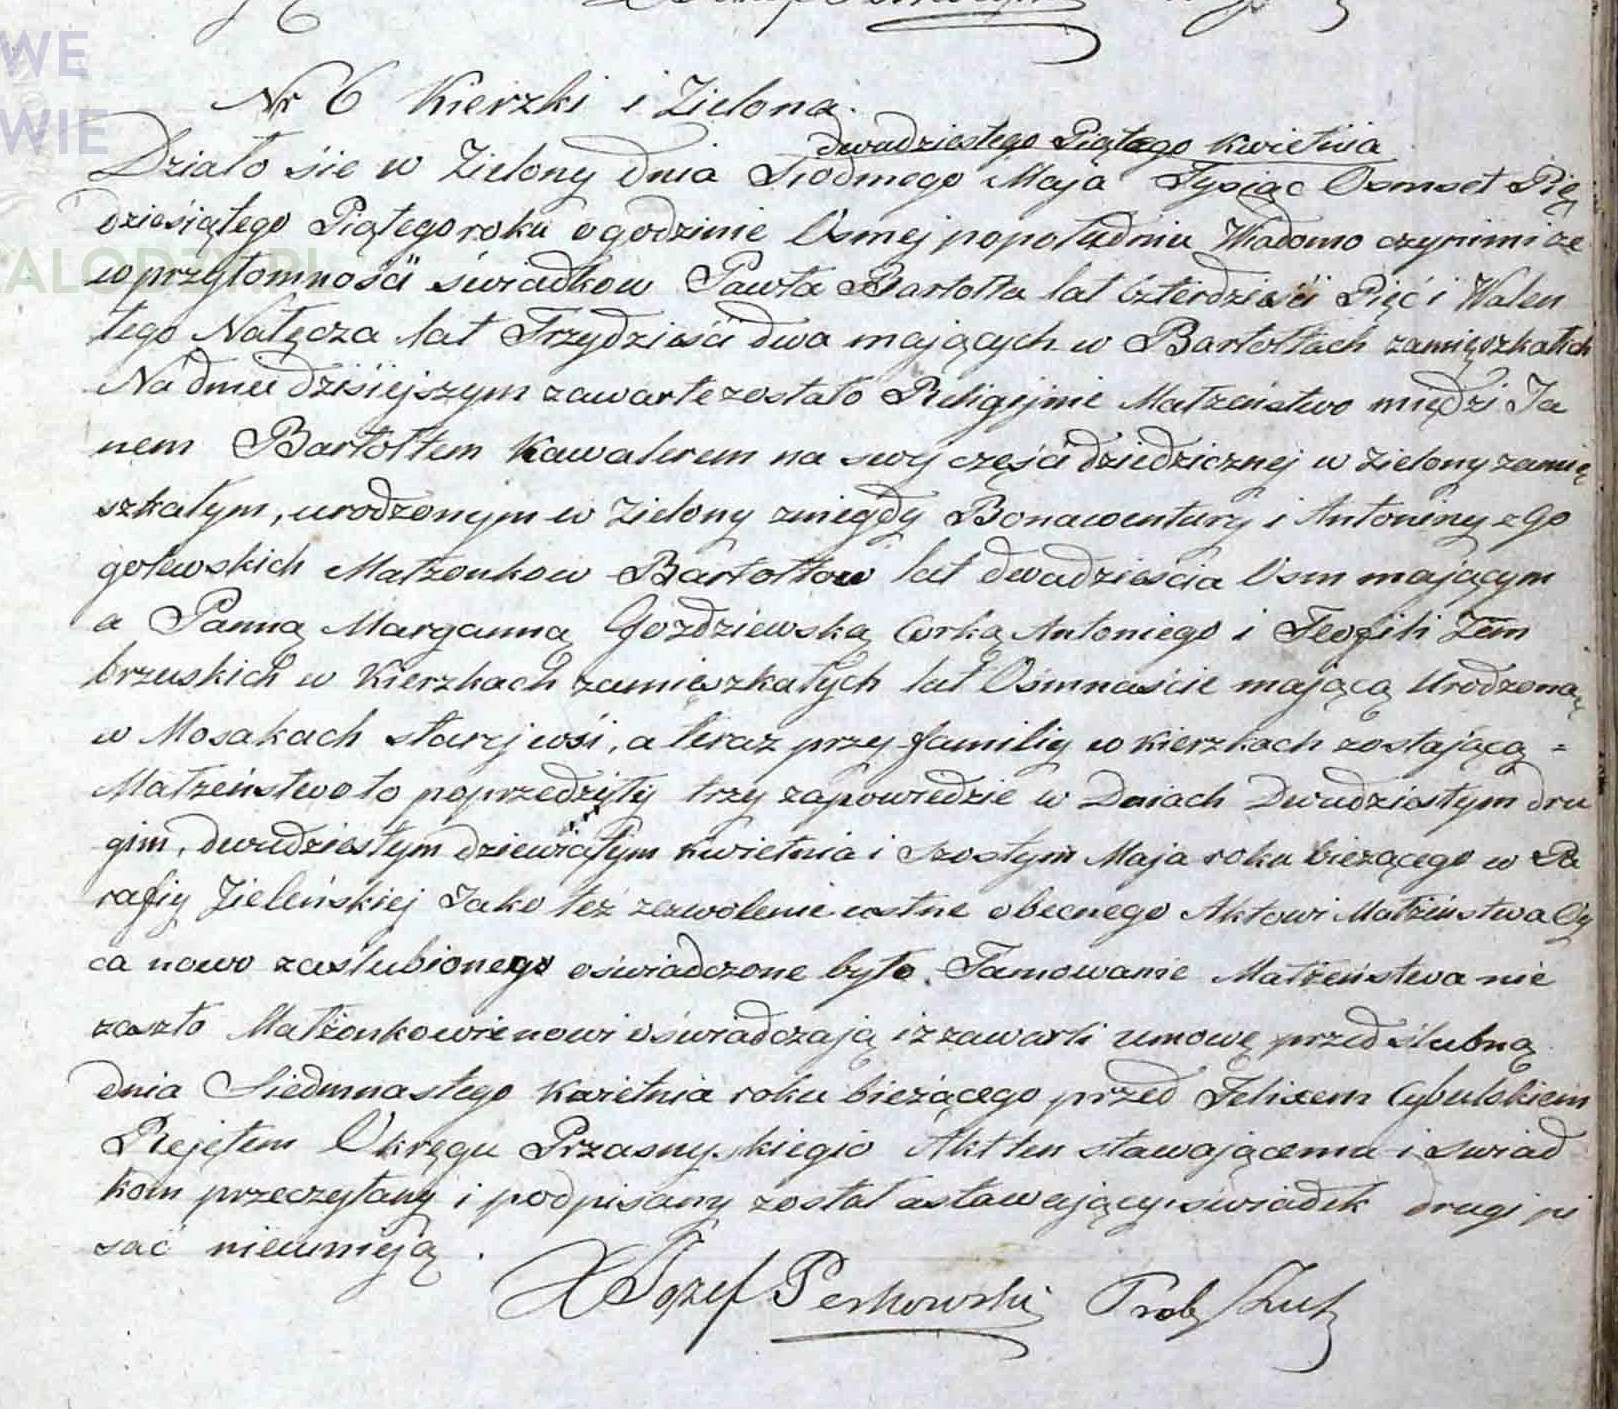 WE
WIE
ALODZI.PL
Nr 6 Kierzki i Zielona.
dwadziestego Piątego Kwietnia
Działo sie w Zielony dnia Siodmego Maja Tysiąc Osmset Pię
dziesiątego Piątego roku o godzinie Osmej popołudniu Wiadomo czynimi że
w przytomności świadkow Pawła Bartołta lat Czterdzieści Pięć i Walen
tego Nałęcza lat Trzydzieści dwa mających w Bartołtach zamięszkałich
Na dniu dzisiejszym zawarte zostało Religijnie Małżeństwo między Ja
nem Bartołtem Kawalerem na swej części dziedzicznej w Zielony zamię
szkałym, urodzonym w Zielony zmiegdy Bonawentury i Antoniny z Go
golewskich Małżonkow Bartołtow lat dwadzieścia Osm mającym
a Panną Maryanną Gozdziewską Corką Antoniego i Teofili Zem
brzuskich w Kierzkach zamięszkałych lat Osmnaście mającą Urodzoną
w Mosakach starej wsi, a teraz przy familiy w Kierzkach zostającą =
Małżeństwo to poprzedziły trzy zapowiedzie w Dniach Dwudziestym dru
gim, dwudziestym dziewiątym Kwietnia i szostym Maja roku bieżącego w Pa
rafiy Zieleńskiej Jako też zezwolenie ustne obecnego Aktowi Małżeństwa Oy
ca nowo zaślubionego oświadczone było. Tamowanie Małżeństwa nie
zaszło Małżonkowie nowi oświadczają iż zawarli umowę przed ślubną
dnia Siedmnastego Kwietnia roku bieżącego przed Felixem Cybulskiem
Rejętem Okręgu Przasnyskiegio Akt ten stawającemu i swiad
kom przeczytany i podpisany został a stawający i świadek drugi pi
sać nieumieją.
X Jozef Perkowski Prob